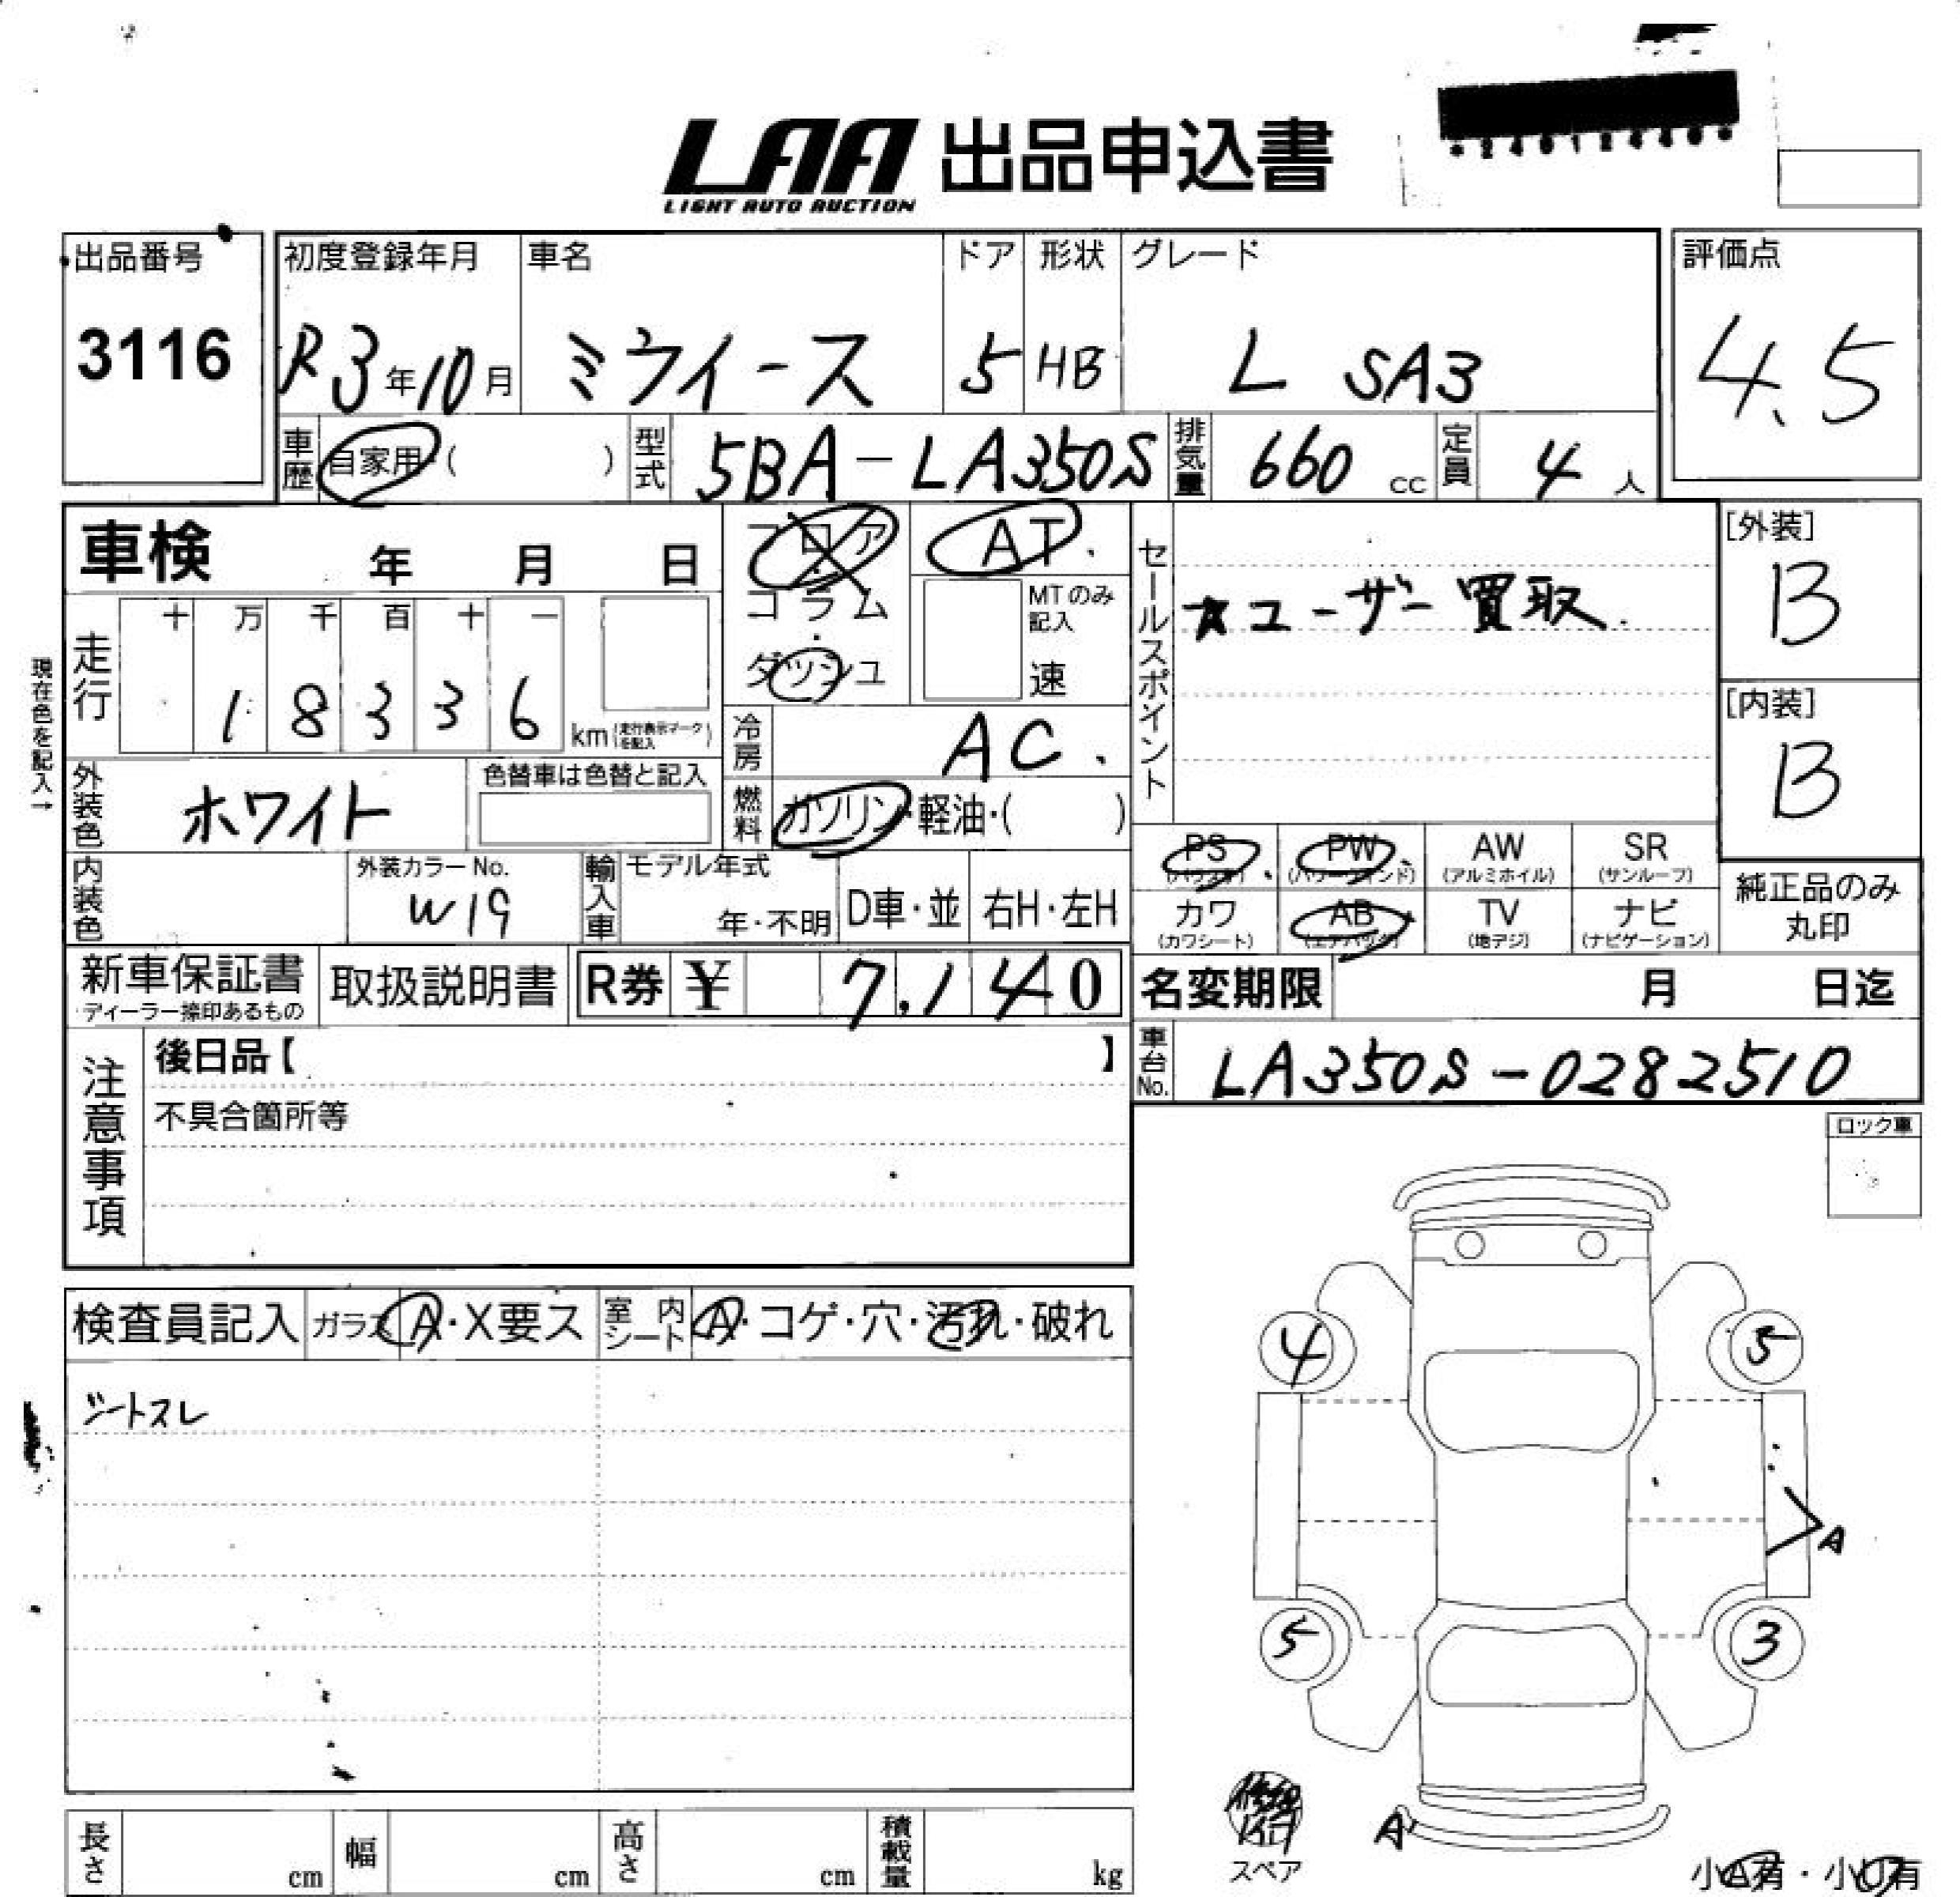 LAA 出品申込書
LIGHT AUTO AUCTION
*24012440*
出品番号
3116
初度登録年月
R3年10月
車名
ミライース
ドア
5
形状
HB
グレード
L SA3
評価点
4.5
車歴
自家用・( )
型式
5BA-LA350S
排気量
660 cc
定員
4 人
車検 年 月 日
フロア
コラム
ダッシュ
AT
MTのみ記入
速
セールスポイント
★ユーザー買取.
[外装]
B
[内装]
B
現在色を記入→
走行
十 万 千 百 十 一
1 8 3 3 6
km (走行表示マークを記入)
冷房
AC.
外装色
ホワイト
色替車は色替と記入
燃料
ガソリン・軽油・( )
内装色
外装カラーNo.
W19
輸入車
モデル年式
年・不明
D車・並
右H・左H
PS (パワステ)
PW (パワーウインド)
AW (アルミホイル)
SR (サンルーフ)
カワ (カワシート)
AB (エアバッグ)
TV (地デジ)
ナビ (ナビゲーション)
純正品のみ丸印
新車保証書
ディーラー捺印あるもの
取扱説明書
R券 ¥ 7,140
名変期限 月 日迄
車台No.
LA350S-0282510
注意事項
後日品【 】
不具合箇所等
ロック車
検査員記入
ガラス A・X要ス
室内シート A・コゲ・穴・汚れ・破れ
シートスレ
4
5
A
5
3
A
スペア
長さ cm
幅 cm
高さ cm
積載量 kg
小A有・小U有